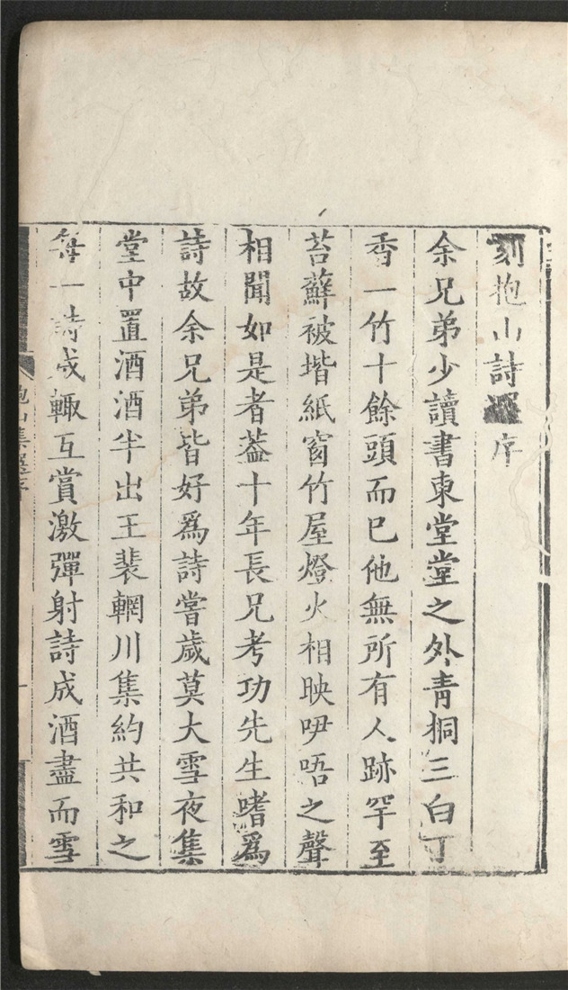 刻抱山詩選序
余兄弟少讀書東堂堂之外青桐三白丁
香一竹十餘頭而已他無所有人跡罕至
苔蘚被堦紙窗竹屋燈火相映咿唔之聲
相聞如是者葢十年長兄考功先生嗜爲
詩故余兄弟皆好爲詩嘗歲莫大雪夜集
堂中置酒酒半出王裴輞川集約共和之
每一詩成輙互賞激彈射詩成酒盡而雪
抱山集選序